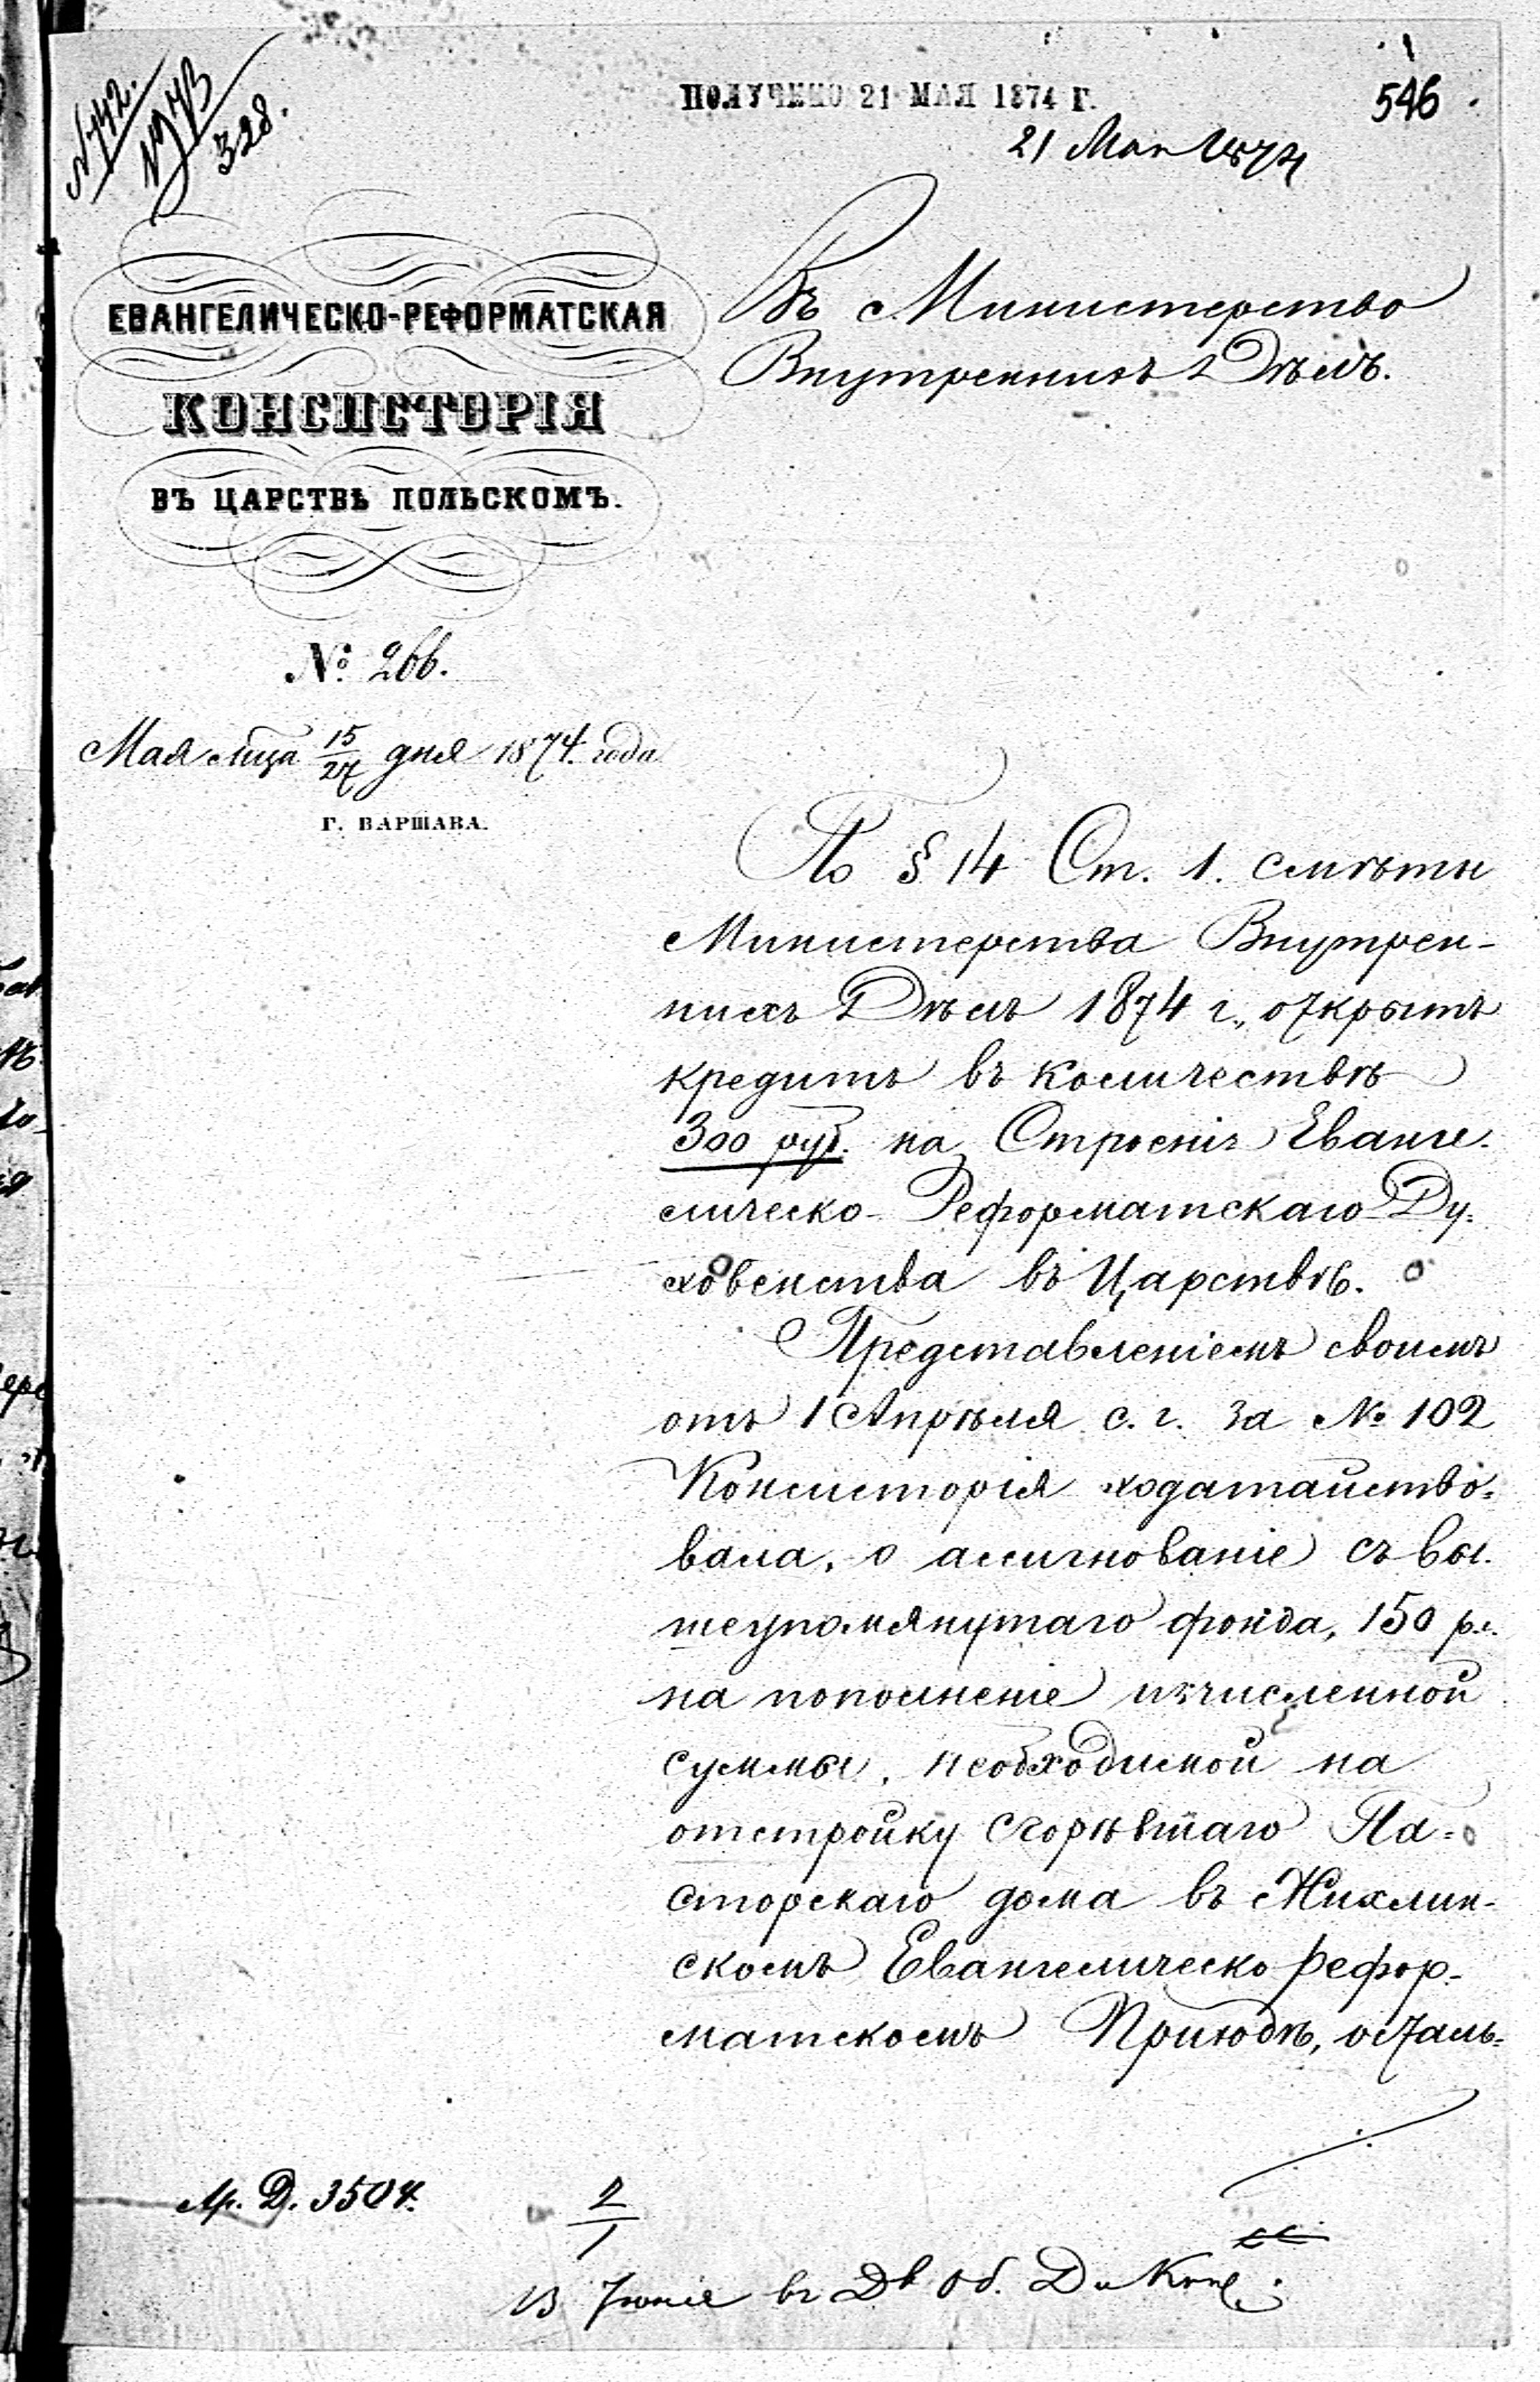 № 742.
328.
ПОЛУЧЕНО 21 МАЯ 1874 Г.
546
21 Мая 1874
ЕВАНГЕЛИЧЕСКО-РЕФОРМАТСКАЯ
КОНСИСТОРІЯ
ВЪ ЦАРСТВѢ ПОЛЬСКОМЪ.
№ 266.
Мая мца 15/27 дня 1874 года
Г. ВАРШАВА.
Въ Министерство
Внутреннихъ Дѣлъ.
По § 14 Ст. 1. смѣты
Министерства Внутрен-
нихъ Дѣлъ 1874 г., открытъ
кредитъ въ количествѣ
300 руб. на Строенія Еванге-
лическо-Реформатскаго Ду-
ховенства въ Царствѣ.
Представленіемъ своимъ
отъ 1 Апрѣля с. г. за № 102
Консисторія ходатайство-
вала, о ассигнованіе съ вы-
шеупомянутаго фонда, 150 р.
на пополненіе изчисленной
суммы, необходимой на
отстройку сгорѣвшаго Па-
сторскаго дома въ Жихлин-
скомъ Евангелическо рефор-
матскомъ Приходѣ, осталь-
Д. 3504.
2/1
13 Іюня въ